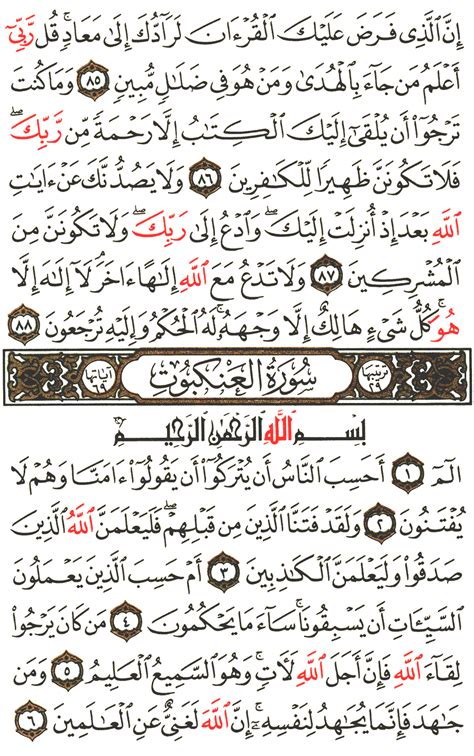 إِنَّ ٱلَّذِى فَرَضَ عَلَيْكَ ٱلْقُرْءَانَ لَرَآدُّكَ إِلَىٰ مَعَادٍ ۚ قُل رَّبِّىٓ
أَعْلَمُ مَن جَآءَ بِٱلْهُدَىٰ وَمَنْ هُوَ فِى ضَلَٰلٍ مُّبِينٍ ٨٥ وَمَا كُنتَ
تَرْجُوٓا۟ أَن يُلْقَىٰٓ إِلَيْكَ ٱلْكِتَٰبُ إِلَّا رَحْمَةً مِّن رَّبِّكَ ۖ
فَلَا تَكُونَنَّ ظَهِيرًا لِّلْكَٰفِرِينَ ٨٦ وَلَا يَصُدُّنَّكَ عَنْ ءَايَٰتِ
ٱللَّهِ بَعْدَ إِذْ أُنزِلَتْ إِلَيْكَ ۖ وَٱدْعُ إِلَىٰ رَبِّكَ ۖ وَلَا تَكُونَنَّ مِنَ
ٱلْمُشْرِكِينَ ٨٧ وَلَا تَدْعُ مَعَ ٱللَّهِ إِلَٰهًا ءَاخَرَ ۘ لَآ إِلَٰهَ إِلَّا
هُوَ ۚ كُلُّ شَىْءٍ هَالِكٌ إِلَّا وَجْهَهُۥ ۚ لَهُ ٱلْحُكْمُ وَإِلَيْهِ تُرْجَعُونَ ٨٨
ترتيبها ٢٩ سُورَةُ ٱلْعَنْكَبُوتِ آياتها ٦٩
بِسْمِ ٱللَّهِ ٱلرَّحْمَٰنِ ٱلرَّحِيمِ
الٓمٓ ١ أَحَسِبَ ٱلنَّاسُ أَن يُتْرَكُوٓا۟ أَن يَقُولُوٓا۟ ءَامَنَّا وَهُمْ لَا
يُفْتَنُونَ ٢ وَلَقَدْ فَتَنَّا ٱلَّذِينَ مِن قَبْلِهِمْ ۖ فَلَيَعْلَمَنَّ ٱللَّهُ ٱلَّذِينَ
صَدَقُوا۟ وَلَيَعْلَمَنَّ ٱلْكَٰذِبِينَ ٣ أَمْ حَسِبَ ٱلَّذِينَ يَعْمَلُونَ
ٱلسَّيِّـَٔاتِ أَن يَسْبِقُونَا ۚ سَآءَ مَا يَحْكُمُونَ ٤ مَن كَانَ يَرْجُوا۟
لِقَآءَ ٱللَّهِ فَإِنَّ أَجَلَ ٱللَّهِ لَءَاتٍ ۚ وَهُوَ ٱلسَّمِيعُ ٱلْعَلِيمُ ٥ وَمَن
جَٰهَدَ فَإِنَّمَا يُجَٰهِدُ لِنَفْسِهِۦٓ ۚ إِنَّ ٱللَّهَ لَغَنِىٌّ عَنِ ٱلْعَٰلَمِينَ ٦